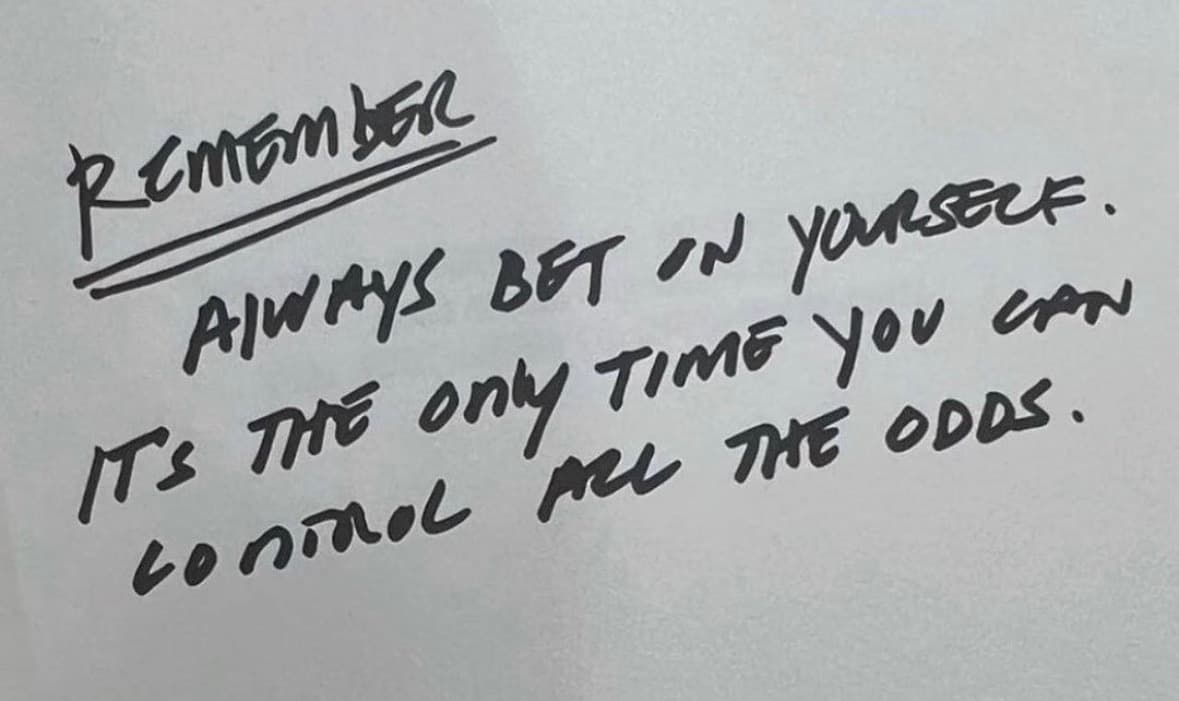 REMEMBER
AlWAYS BET ON YOURSELF.
IT'S THE Only TIME YOU CAN
CONTROL ALL THE ODDS.